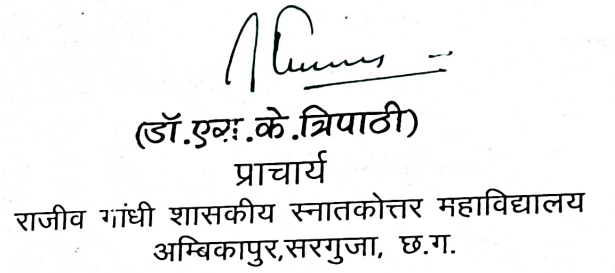 (डॉ.एस.के.त्रिपाठी)
प्राचार्य
राजीव गांधी शासकीय स्नातकोत्तर महाविद्यालय
अम्बिकापुर,सरगुजा, छ.ग.